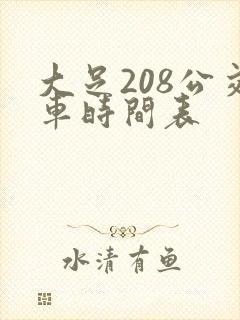 大足208公交
車時間表
水清有鱼